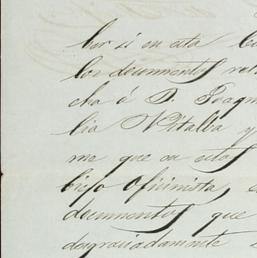 bar si en esta
los documentos
cha á D. Joaqu
lia Vitalba y
me que en esta
bifo Ofiinista,
documentos que
desgraciadamente